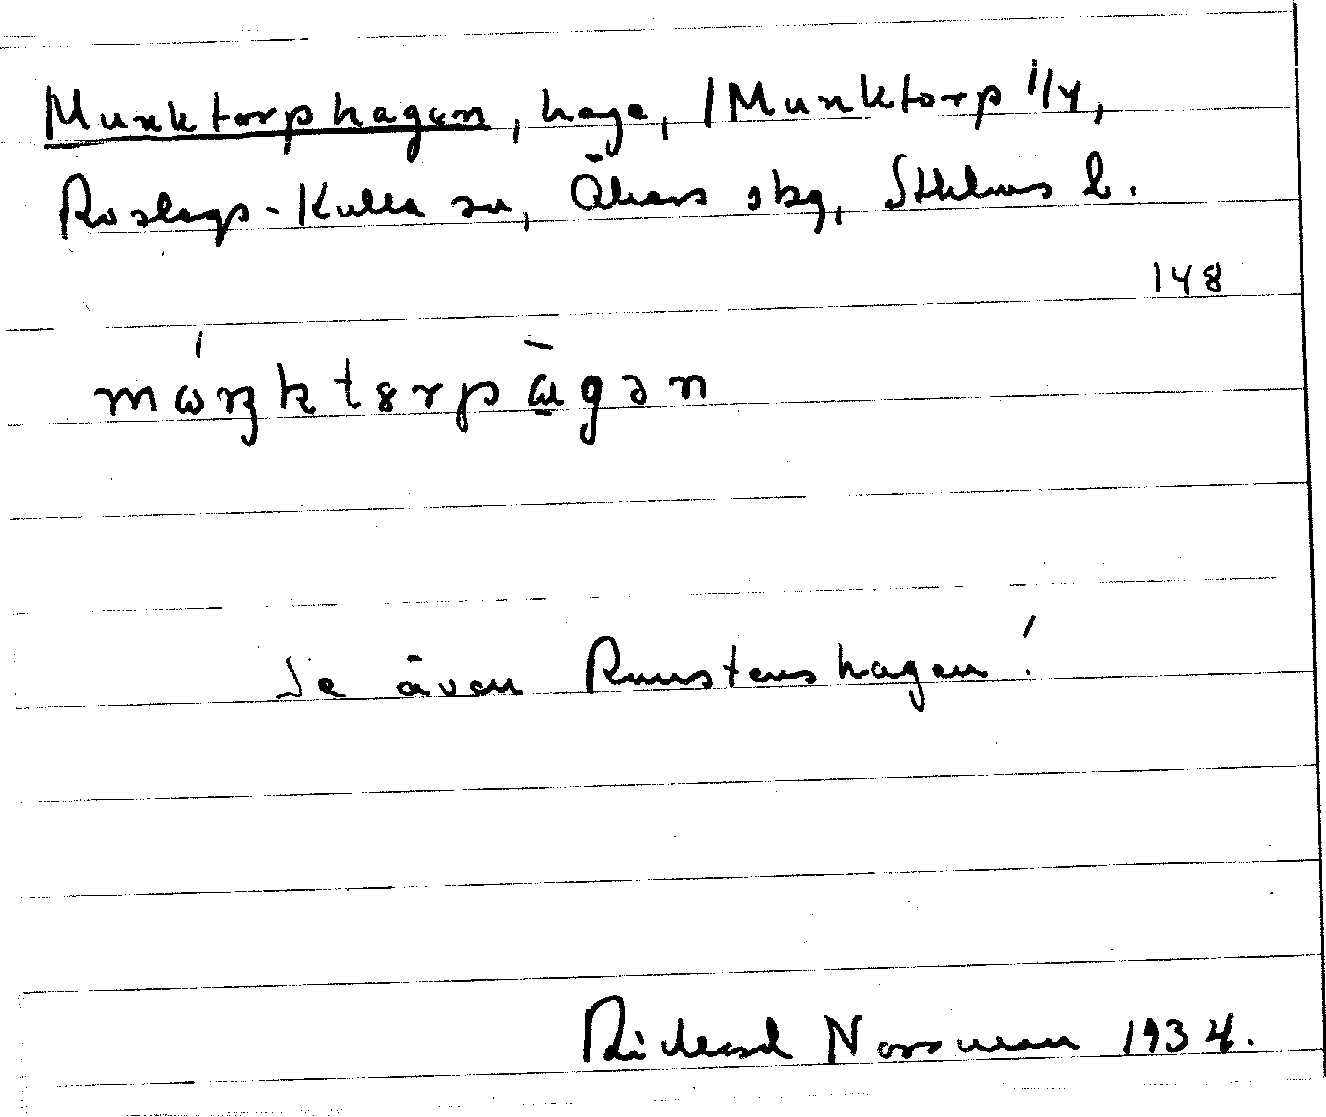 Munktorphagen, hage, /Munktorp 1/4,
Roslags-Kulla sn, Åkers skg, Sthlms l.
148
Se även Runstenshagen!
Richard Norrman 1934.